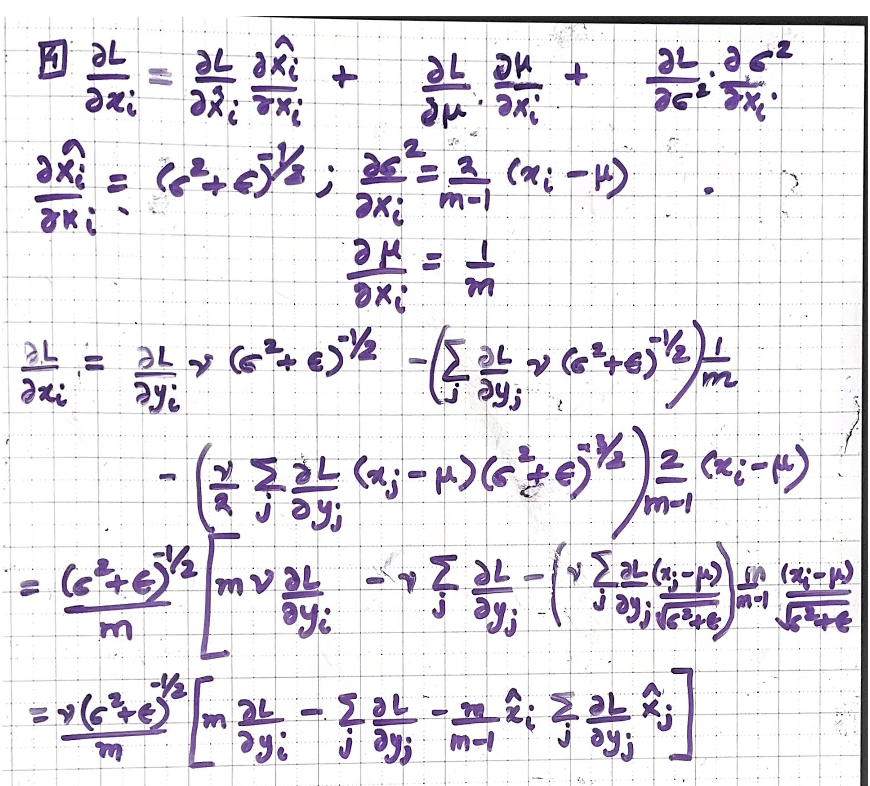 4 ∂L/∂xᵢ = ∂L/∂x̂ᵢ ∂x̂ᵢ/∂xᵢ + ∂L/∂μ · ∂μ/∂xᵢ + ∂L/∂σ² · ∂σ²/∂xᵢ
∂x̂ᵢ/∂xᵢ = (σ²+ϵ)^(-1/2) ; ∂σ²/∂xᵢ = 2/(m-1) (xᵢ-μ)
∂μ/∂xᵢ = 1/m
∂L/∂xᵢ = ∂L/∂yᵢ ν (σ²+ϵ)^(-1/2) - (∑ⱼ ∂L/∂yⱼ ν (σ²+ϵ)^(-1/2)) 1/m
- (ν/2 ∑ⱼ ∂L/∂yⱼ (xⱼ-μ)(σ²+ϵ)^(-3/2)) 2/(m-1) (xᵢ-μ)
= (σ²+ϵ)^(-1/2)/m [m ν ∂L/∂yᵢ - ν ∑ⱼ ∂L/∂yⱼ - (ν ∑ⱼ ∂L/∂yⱼ (xⱼ-μ)/√(σ²+ϵ)) m/(m-1) (xᵢ-μ)/√(σ²+ϵ)
= ν(σ²+ϵ)^(-1/2)/m [m ∂L/∂yᵢ - ∑ⱼ ∂L/∂yⱼ - m/(m-1) x̂ᵢ ∑ⱼ ∂L/∂yⱼ x̂ⱼ]